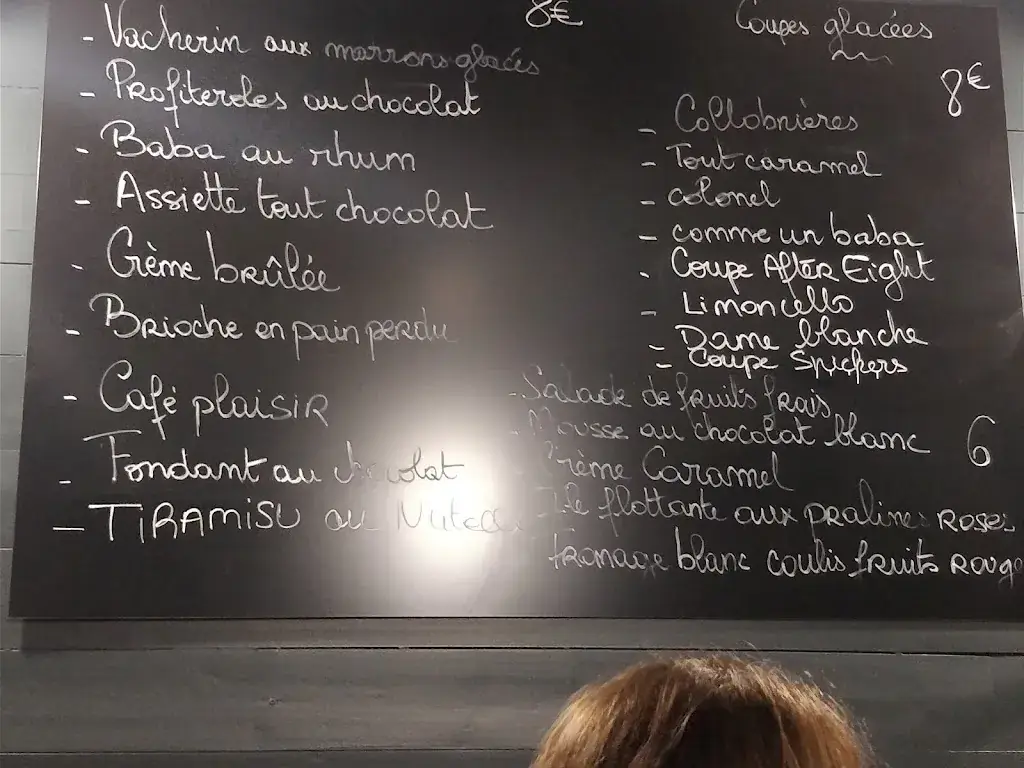 8€
- Vacherin aux marrons glacés
- Profiteroles au chocolat
- Baba au rhum
- Assiette tout chocolat
- Crème brûlée
- Brioche en pain perdu
- Café plaisir
- Fondant au chocolat
- TIRAMISU au Nutella
Coupes glacées
8€
- Collobnières
- Tout caramel
- colonel
- comme un baba
- Coupe After Eight
- Limoncello
- Dame blanche
- Coupe Snickers
- Salade de fruits frais
- Mousse au chocolat blanc 6
- Crème Caramel
- Ile flottante aux pralines ROSES
fromage blanc coulis fruits ROUGE